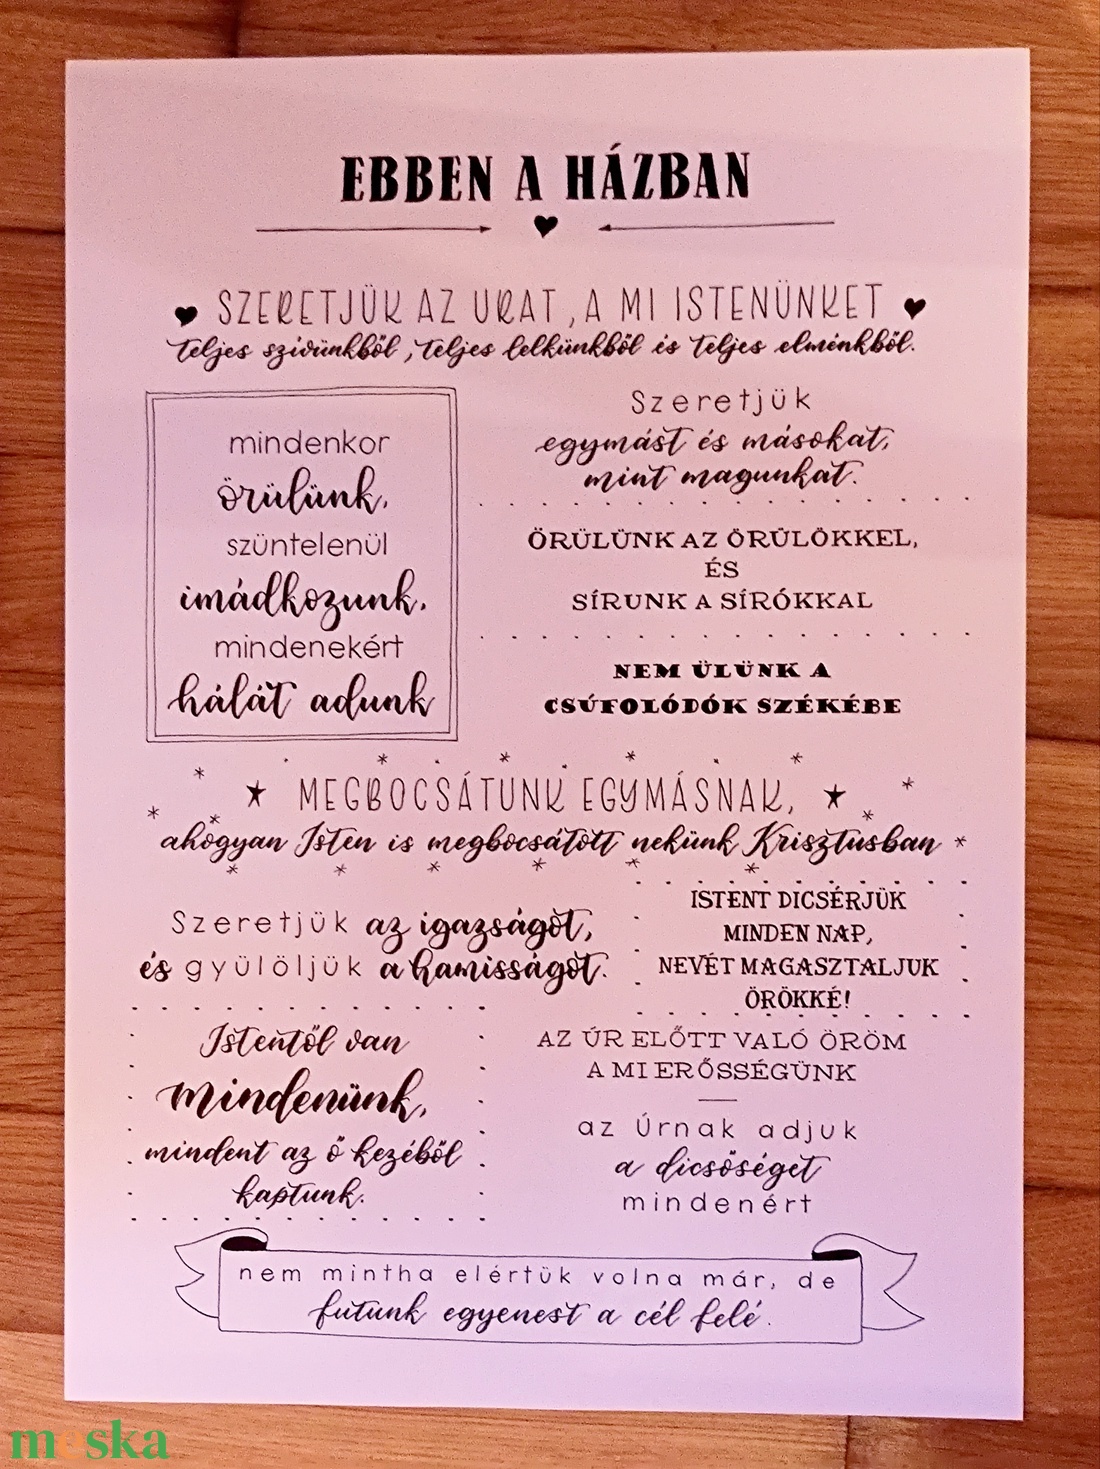 EBBEN A HÁZBAN
SZERETJÜK AZ URAT, A MI ISTENÜNKET
teljes szívünkből, teljes lelkünkből és teljes elménkből.
mindenkor
örülünk,
szüntelenül
imádkozunk,
mindenekért
hálát adunk
Szeretjük
egymást és másokat,
mint magunkat.
ÖRÜLÜNK AZ ÖRÜLŐKKEL,
ÉS
SÍRUNK A SÍRÓKKAL
NEM ÜLÜNK A
CSÚFOLÓDÓK SZÉKÉBE
MEGBOCSÁTUNK EGYMÁSNAK,
ahogyan Isten is megbocsátott nekünk Krisztusban
Szeretjük az igazságot,
és gyűlöljük a hamisságot.
ISTENT DICSÉRJÜK
MINDEN NAP,
NEVÉT MAGASZTALJUK
ÖRÖKKÉ!
Istentől van
mindenünk,
mindent az ő kezéből
kaptunk.
AZ ÚR ELŐTT VALÓ ÖRÖM
A MI ERŐSSÉGÜNK
az Úrnak adjuk
a dicsőséget
mindenért
nem mintha elértük volna már, de
futunk egyenest a cél felé.
meska